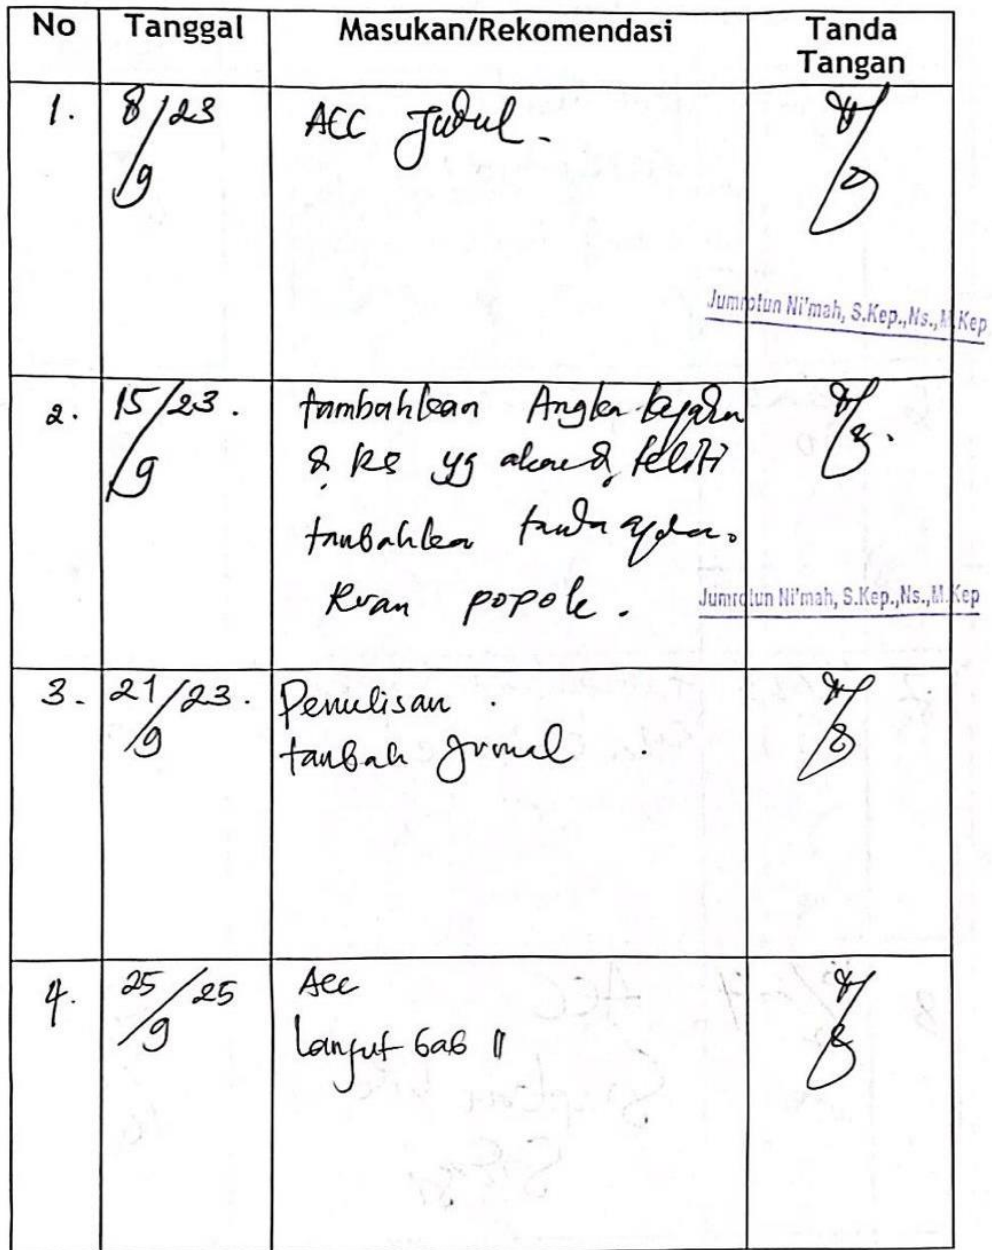 No Tanggal Masukan/Rekomendasi Tanda Tangan
1. 8/9/23 ACC Judul.
Jumrotun Ni'mah, S.Kep.,Ns.,M.Kep
2. 15/9/23. tambahkan Angka
di RS yg akan di teliti
tambahkan tanda
popok.
Jumrotun Ni'mah, S.Kep.,Ns.,M.Kep
3. 21/9/23. Penulisan.
tambah Jurnal.
4. 25/9/25 Acc
Lanjut bab II